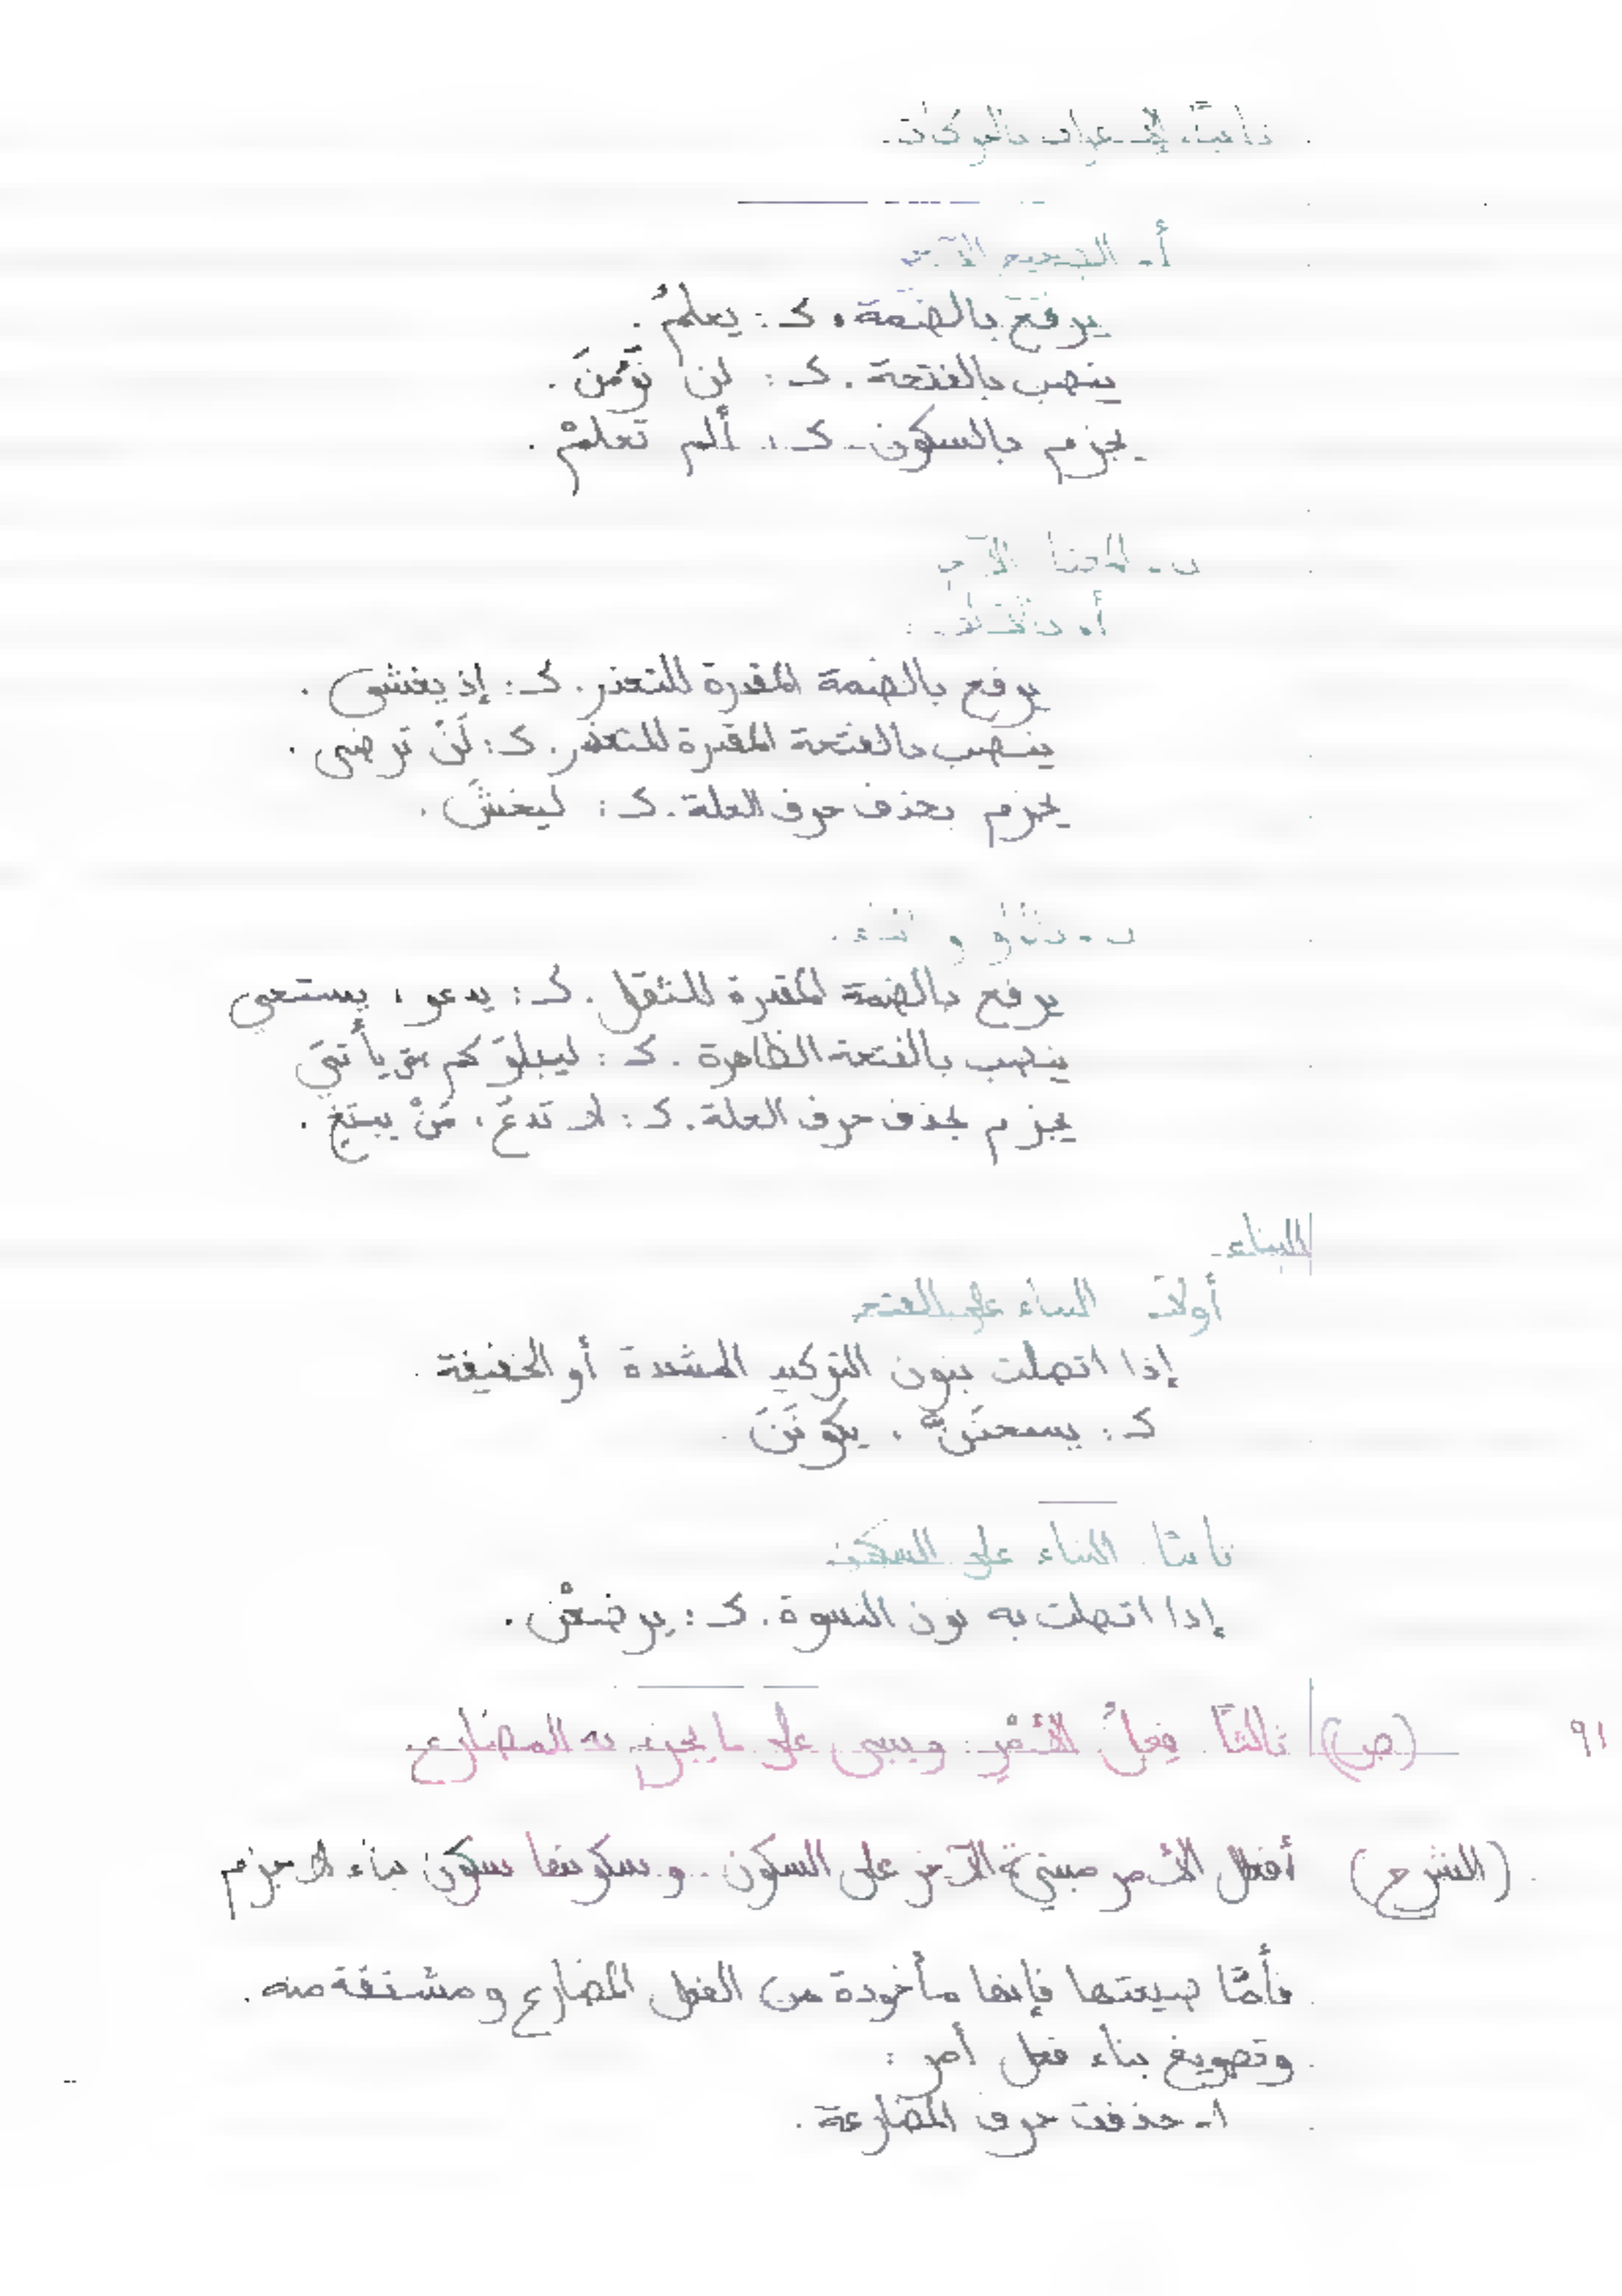 ثانيًا: الإعراب بالحركات.
أ- الصحيح الآخر
يرفع بالضمة، كـ: يعلمُ.
ينصب بالفتحة. كـ: لن نؤمنَ.
يجزم بالسكون. كـ: ألم تعلمْ.
ب- المعتل الآخر
أ. بالألف:
يرفع بالضمة المقدرة للتعذر. كـ: إذ يغشى.
ينصب بالفتحة المقدرة للتعذر. كـ: لَنْ ترضى.
يجزم بحذف حرف العلة. كـ: ليخشَ.
ب- بالواو و الياء.
يرفع بالضمة المقدرة للثقل. كـ: يدعو، يستحي
ينصب بالفتحة الظاهرة. كـ: ليبلوَكم حتى يأتيَ
يجزم بحذف حرف العلة. كـ: لا تدعُ، مَنْ يبتغِ.
البناء
أولاً: البناء على الفتح
إذا اتصلت بنون التوكيد المشددة أو الخفيفة.
كـ: يسجننَّ، يكونَنَ.
ثانيًا: البناء على السكون
إذا اتصلت به نون النسوة. كـ: يرضعْن.
٩١ (ص) ثالثًا: فِعلُ الأَمْرِ: ويبنى على ما يجزم به المضارع
(الشرح) أفعال الأمر مبنية الآخر على السكون. و سكونها سكون بناء لا جزم
فأمّا صيغتها فإنها مأخوذة من الفعل المضارع و مشتقة منه.
وتصويغ بناء فعل أمر:
١- حذفت حرف المضارعة.